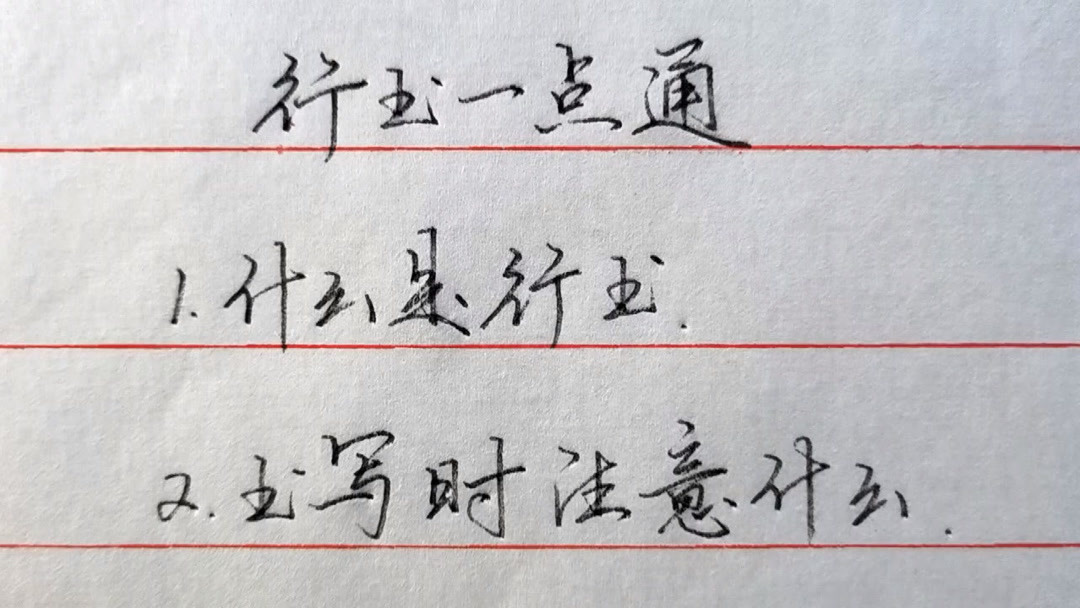 行书一点通
1.什么是行书.
2.书写时注意什么.